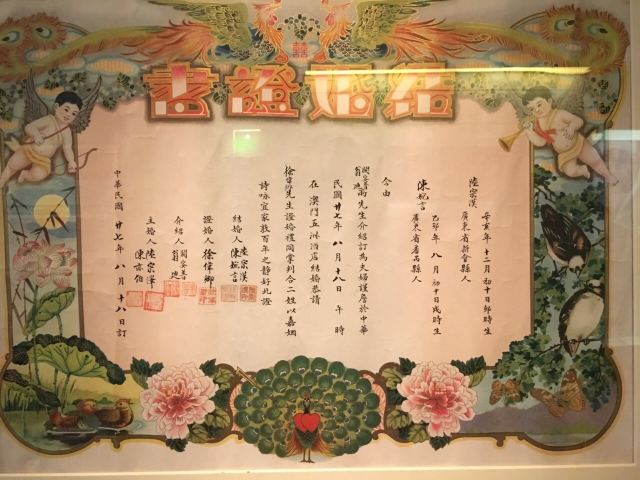 結婚證書
陸宗漢 廣東省新會縣人 辛亥年十二月初十日卯時生
陳婉言 廣東省番禺縣人 乙卯年八月初十日戌時生
今由
翁迎 兩先生介紹訂為夫婦謹詹於中華
民國廿七年八月十八日午時
在澳門五洲酒店結婚恭請
徐偉卿先生證婚禮同掌判合二姓以嘉姻
詩咏宜家敦百年之靜好此證
結婚人 陸宗漢 陳婉言
證婚人 徐偉卿
介紹人 翁迎
主婚人 陸宗澤 陳亦伯
中華民國廿七年八月十八日訂